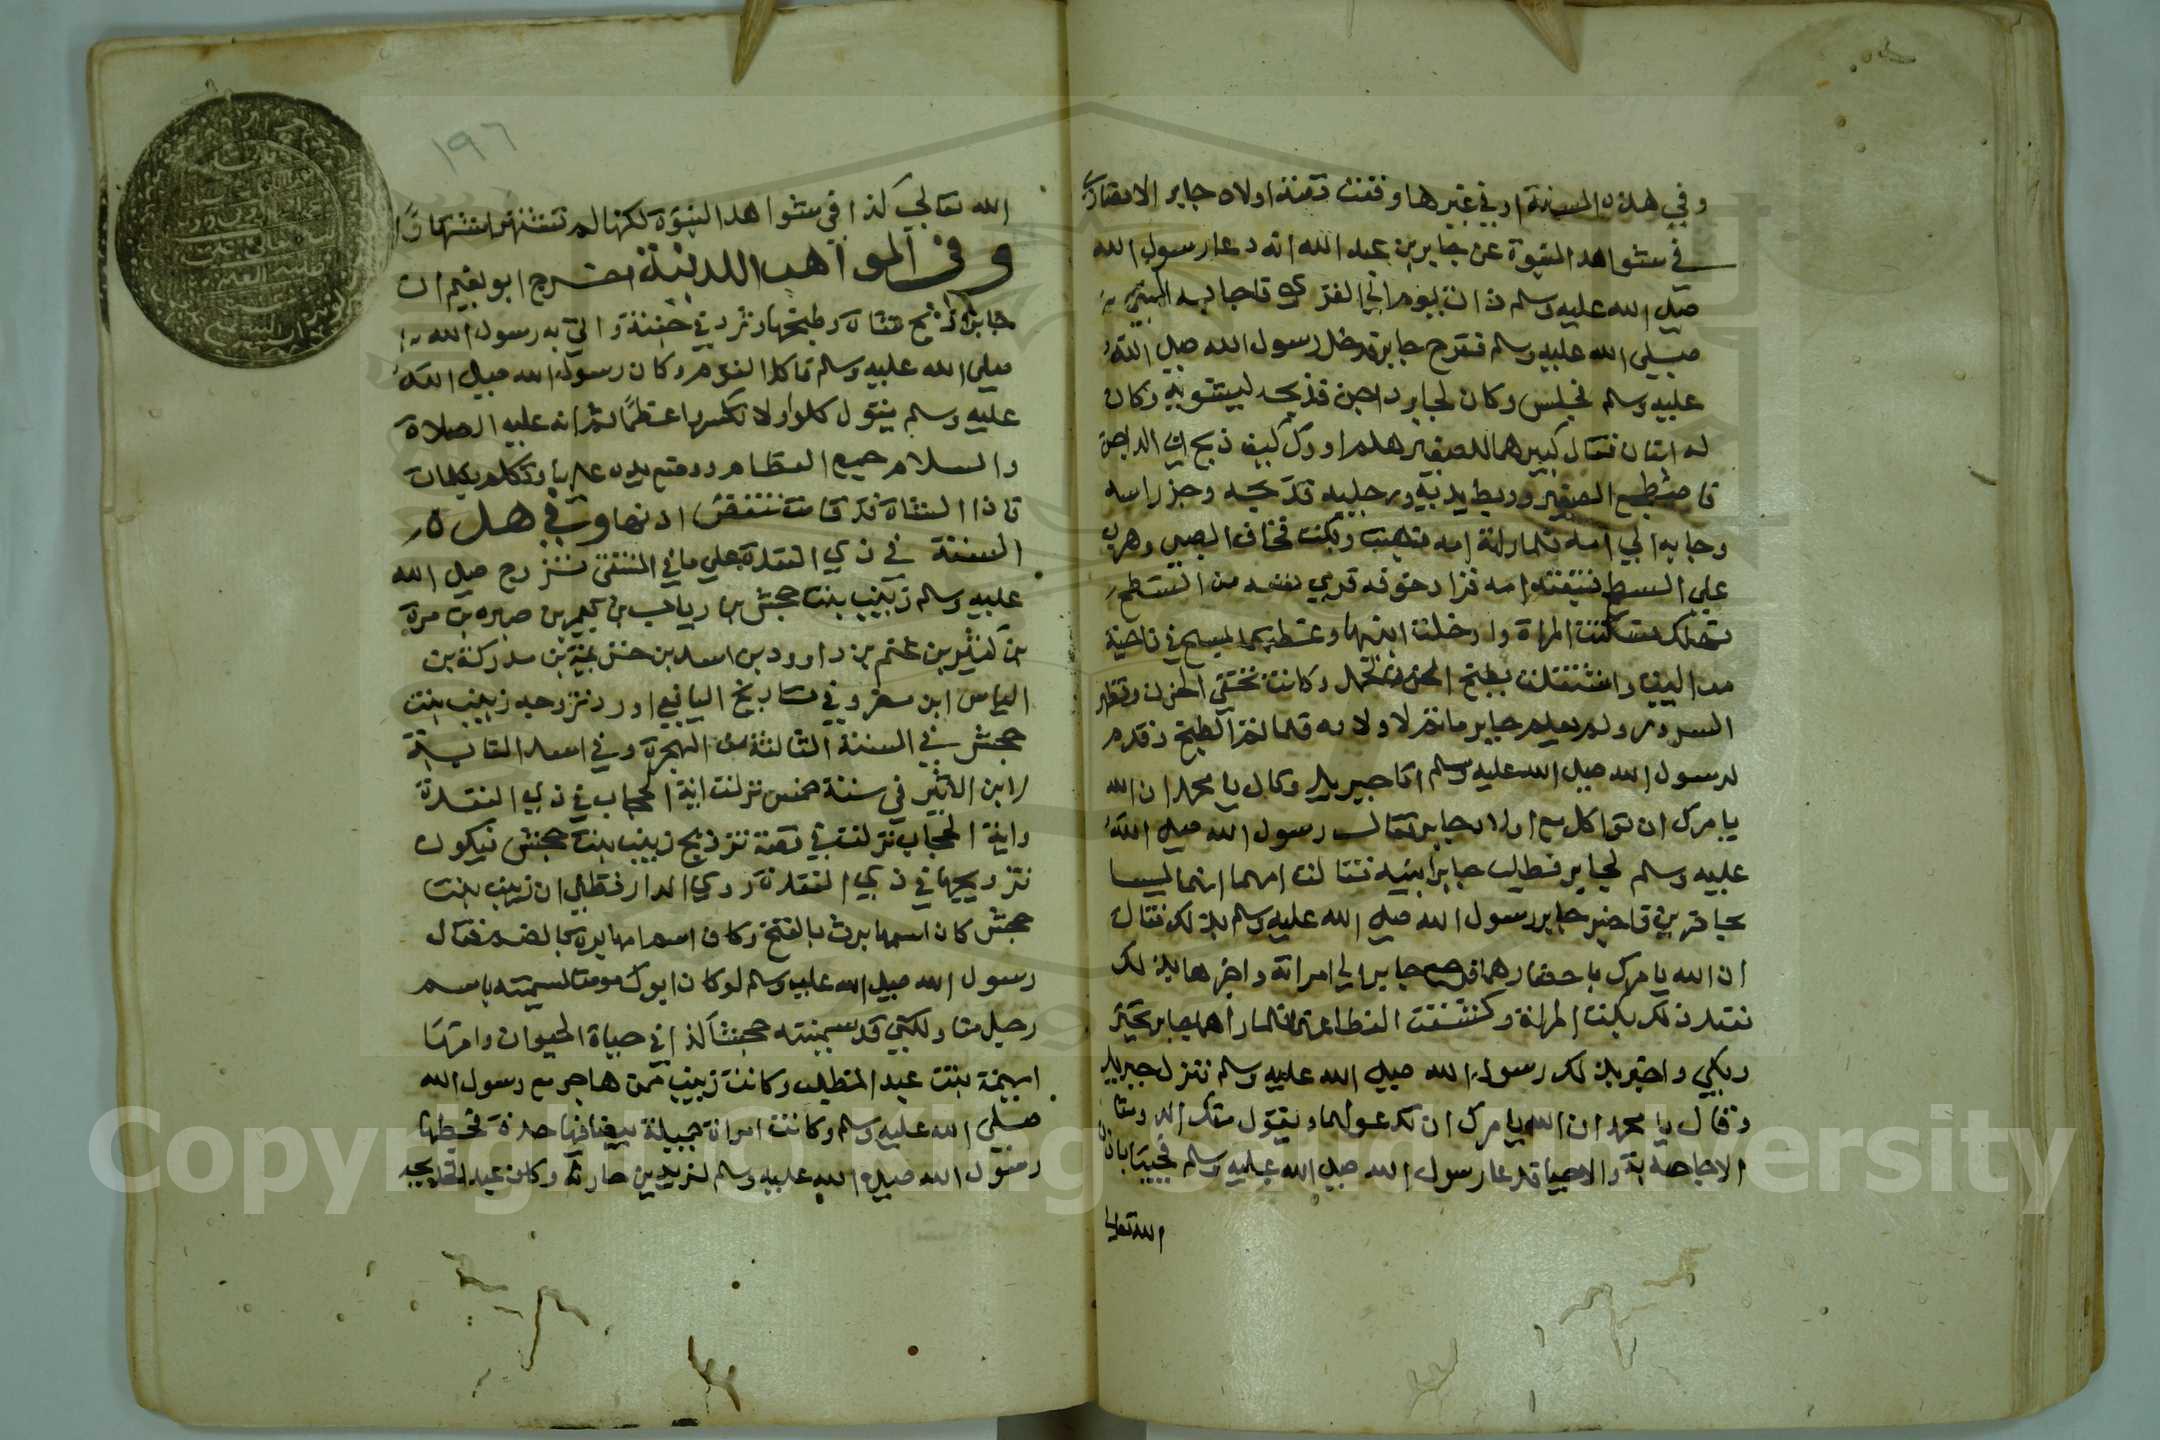 وفي هذه السنة او في غيرها وقعت قصة اولاد جابر الانصاري
في شواهد النبوة عن جابر بن عبد الله انه دعا رسول الله
صلى الله عليه وسلم ذات يوم الي القرى فاجابه النبي
صلى الله عليه وسلم ففرح جابر فدخل رسول الله صلى الله
عليه وسلم فجلس وكان لجابر داجن فذبحه ليشويه وكان
له ابنان فقال كبيرهما للصغير هلم اورك كيف ذبح ابي الداجن
فاضطجع الصغير وربط يديه ورجليه فذبحه وجز راسه
وجا به الي امه فلما راته امه دهشت وبكت فخاف الصبي وهرب
علي السطح فتبعته امه فزاد خوفه فرمي نفسه من السطح
فهلك فسكتت المراة وادخلت ابنيها وغطتهما بمسح في ناحية
من البيت واشتغلت بطبخ الحمل وكانت تخفي الحزن وتظهر
السرور ولم يعلم جابر ما تم لاولاده فلما تم الطبخ وقدم
لرسول الله صلى الله عليه وسلم اتا جبريل وقال يا محمد ان الله
يامرك ان تواكل مع اولاد جابر فقال رسول الله صلى الله
عليه وسلم لجابر فطلب جابر ابنيه فقالت امهما انهما ليسا
بحاضرين فاخبر جابر رسول الله صلى الله عليه وسلم بذلك فقال
ان الله يامرك باحضارهما فرجع جابر الي امراته واخبرها بذلك
فعند ذلك بكت المراة وكشفت الغطا عنهما فلما راهما جابر تحير
وبكي واخبر بذلك رسول الله صلى الله عليه وسلم فنزل جبريل
وقال يا محمد ان الله يامرك ان تدعو لهما ويقول منك الدعا ومنا
الاجابة والاحيا فدعا رسول الله صلى الله عليه وسلم فحييا باذن
الله تعالى
١٩٦
الله تعالي كذا في شواهد النبوة لكنها لم تشتهر اشتهارا
وفى المواهب اللدنية اخرج ابو نعيم ان
جابرا ذبح شاة وطبخها وثرد في جفنة واتي به رسول الله
صلى الله عليه وسلم فاكل القوم وكان رسول الله صلى الله
عليه وسلم يقول كلوا ولا تكسروا عظما ثم انه عليه الصلاة
والسلام جمع العظام ووضع يده عليها وتكلم بكلمات
فاذا الشاة قد قامت تنفض اذنها وفي هذه
السنة في ذي القعدة علي ما في المنتقي تزوج صلى الله
عليه وسلم زينب بنت جحش بن رياب بن يعمر بن صبره بن مرة
بن كثير بن غنم بن داوود بن اسد بن خزيمة بن مدركة بن
الياس ابن مضر وفي تاريخ اليافعي اورد تزوجه زينب بنت
جحش في السنة الثالثة من الهجرة وفي اسد الغابة
لابن الاثير في سنة خمس نزلت اية الحجاب في ذي القعدة
واية الحجاب نزلت في قصة تزويج زينب بنت جحش فيكون
تزويجها في ذي القعدة روي الدارقطني ان زينب بنت
جحش كان اسمها برة بالفتح وكان اسم ابيها برة بالضم فقال
رسول الله صلى الله عليه وسلم لو كان ابوك مومنا لسميته باسم
رجل منا ولكني قد سميته جحشا كذا في حياة الحيوان وامها
اميمة بنت عبد المطلب وكانت زينب ممن هاجر مع رسول الله
صلى الله عليه وسلم وكانت امراة جميلة بيضا فيها حدة فخطبها
رسول الله صلى الله عليه وسلم لزيد بن حارثة وكان عبد لخديجة
Copyright © King Saud University